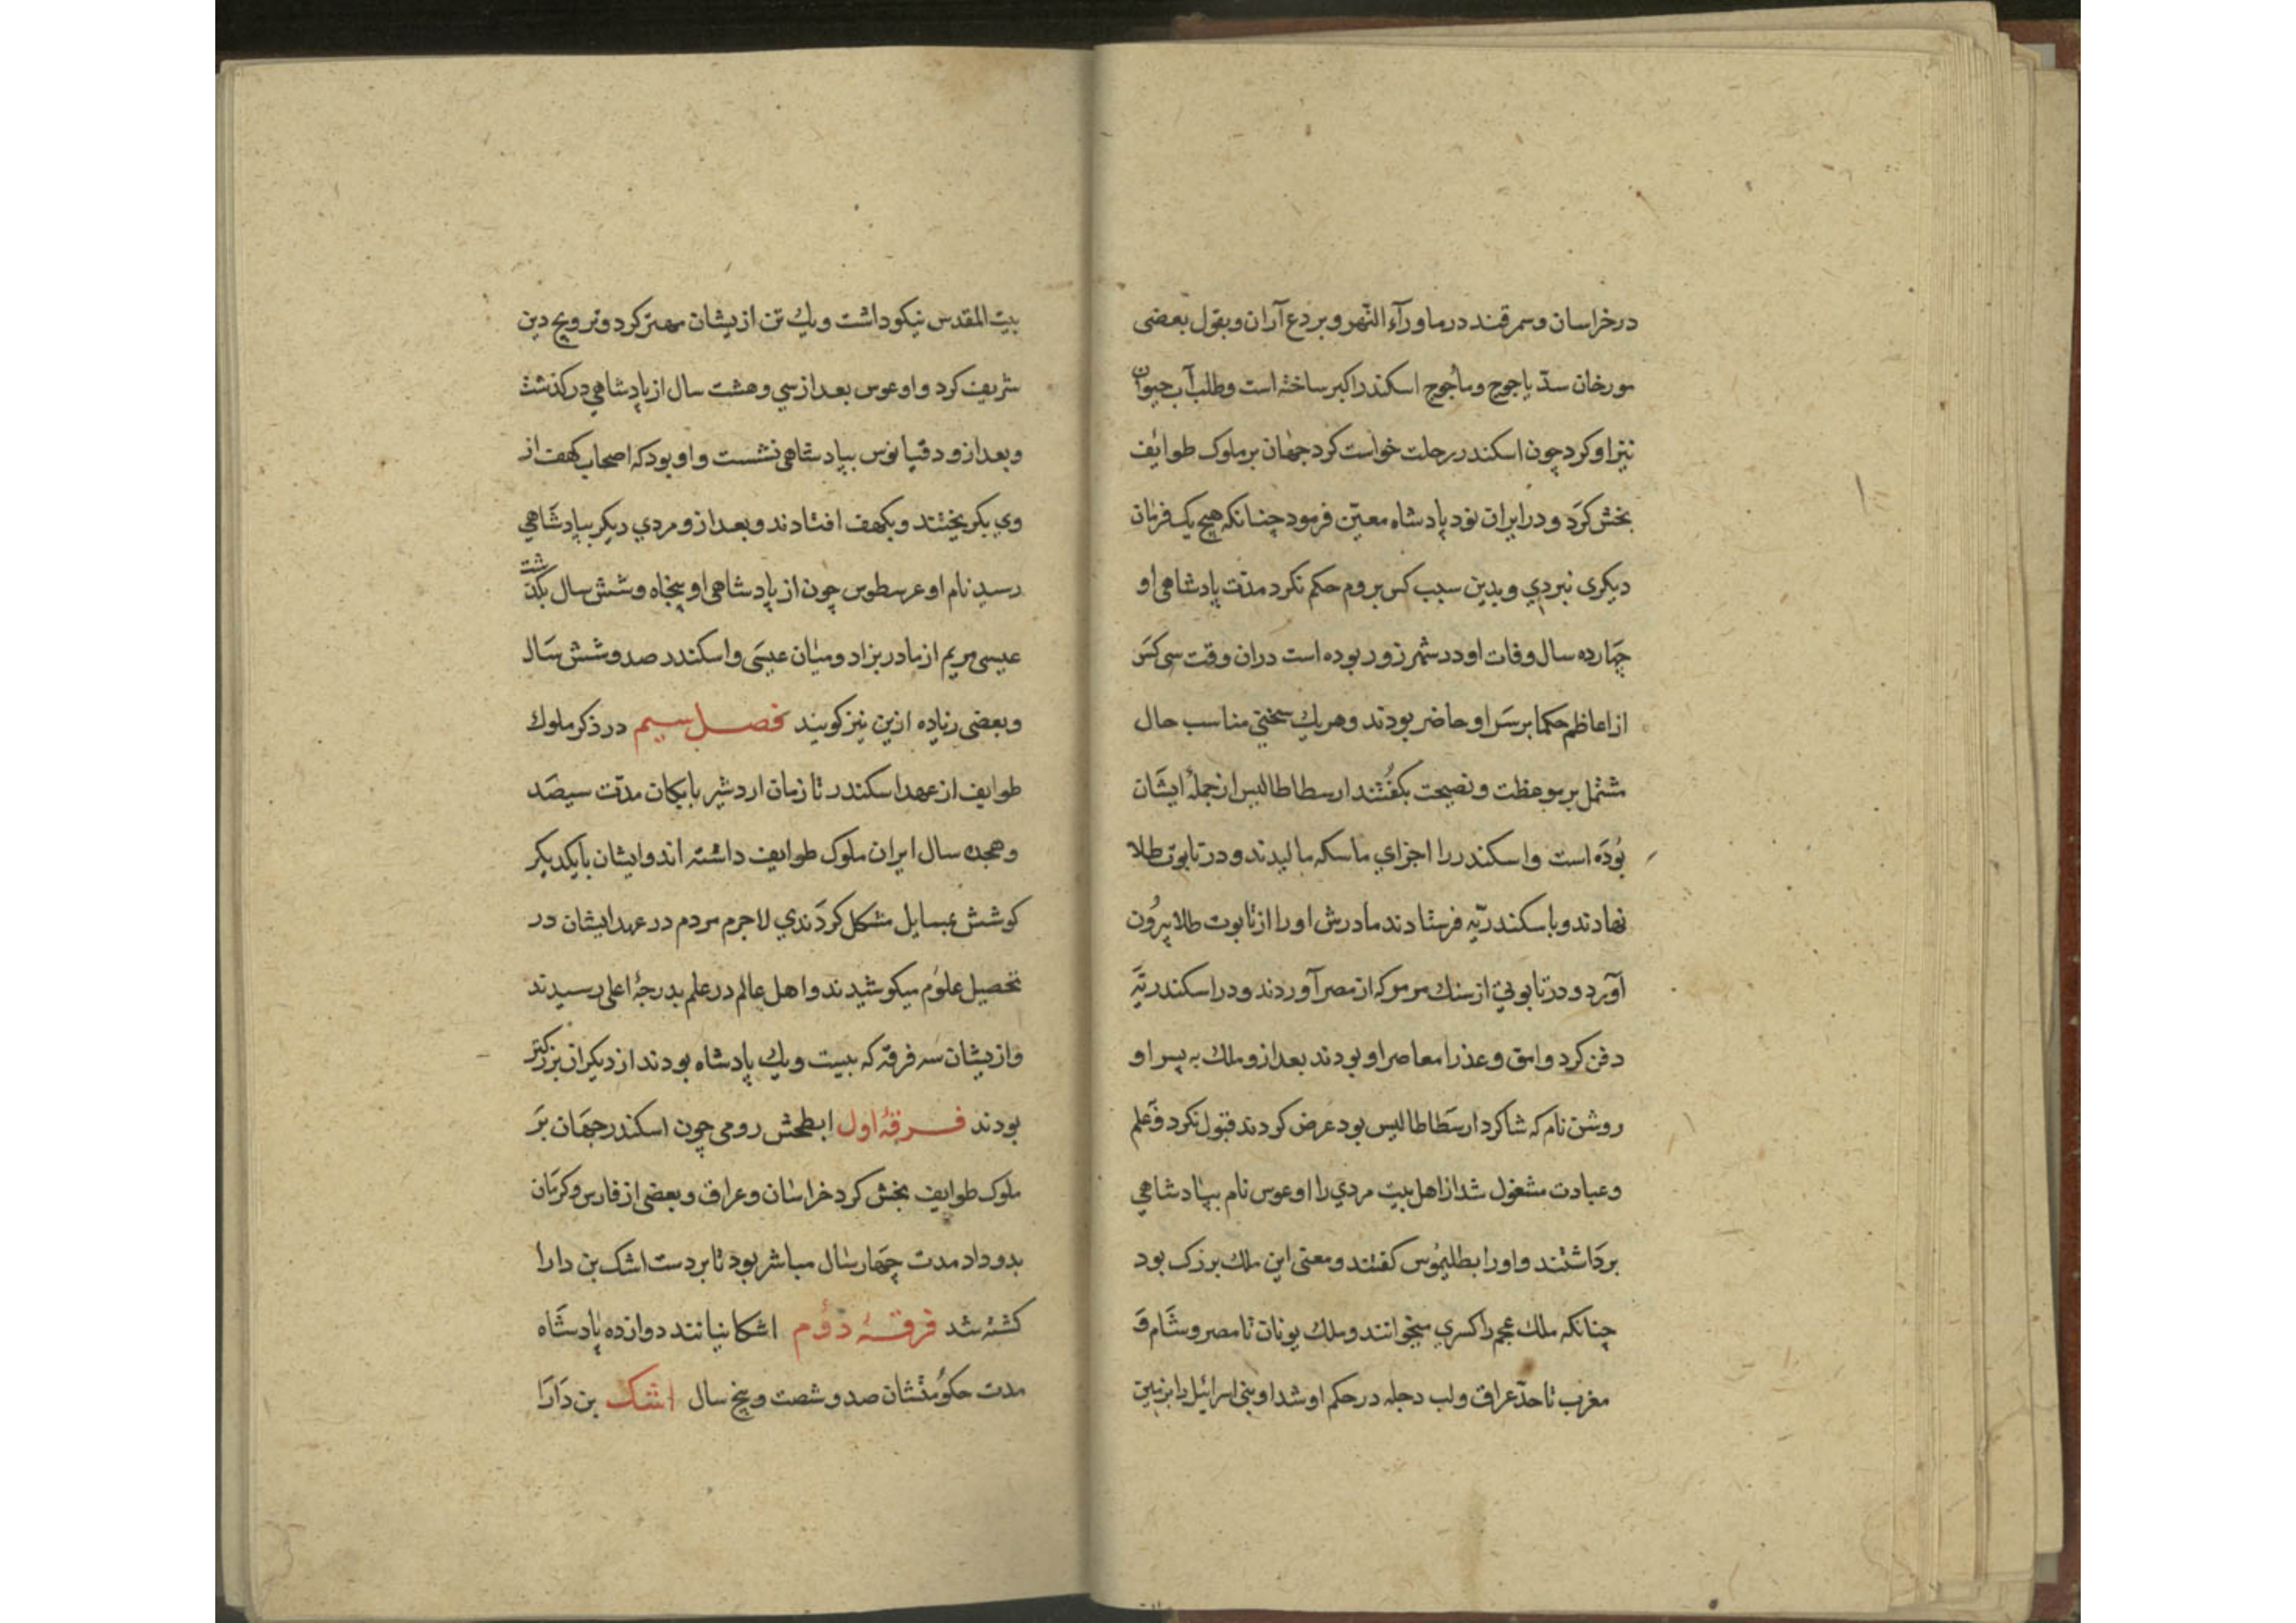 درخراسان وسمرقند درماورآء النّهر وبردع آران وبقول بعضی
مورخان سدّ یاجوج ومأجوج اسکندر اکبر ساخته است وطلب آب حیوان
نیز اوکرد چون اسکندر رحلت خواست کرد جهان برملوک طوایف
بخش کرد ودر ایران نود پادشاه معیّن فرمود چنانکه هیچ یک فرمان
دیکری نبردي وبدین سبب کس بروم حکم نکرد مدّت پادشاهی او
چهارده سال وفات او در شهر زور بوده است دران وقت سی کس
از اعاظم حکما برسر او حاضر بودند وهریك سخنی مناسب حال
مشتمل بر موعظت ونصیحت بکفتند ارسطاطالیس ازجملهٔ ایشان
بوده است واسکندر را اجزاي ماسکه مالیدند ودر تابوت طلا
نهادند وباسکندریّه فرستادند مادرش اورا از تابوت طلا بیرون
آورد ودر تابوتی از سنك مرمر که از مصر آوردند ودر اسکندریّه
دفن کرد وامق وعذرا معاصر او بودند بعد ازو ملك به پسر او
روشن نام که شاکرد ارسطاطالیس بود عرض کردند قبول نکرد وعلم
وعبادت مشغول شد از اهل بیت مردي را اوعوس نام بپادشاهي
برداشتند واورا بطلیموس کفتند ومعنی این ملك بزرک بود
چنانکه ملك عجم را کسري میخوانند وملك یونان تا مصر وشام و
مغرب تا حدّ عراق ولب دجله در حکم او شد او بنی اسرائیل را بزمین
بیت المقدس نیکو داشت ویك تن ازیشان مهتر کرد وترویج دین
شریف کرد واوعوس بعد از سي وهشت سال از پادشاهي درکذشت
وبعد ازو دقیانوس بپادشاهی نشست واو بود که اصحاب کهف از
وي بکریختند وبکهف افتادند وبعد ازو مردي دیکر بپادشاهي
رسید نام او عرسطوس چون از پادشاهی او پنجاه وشش سال بکذشت
عیسی مریم از مادر بزاد ومیان عیسی واسکندر صد وشش سال
وبعضی زیاده ازین نیز کویند فصل سیم در ذکر ملوك
طوایف از عهد اسکندر تا زمان اردشیر بابکان مدّت سیصد
وهجده سال ایران ملوک طوایف داشته اند وایشان بایکدیکر
کوشش بمسایل مشکل کردندي لاجرم مردم در عهد ایشان در
تحصیل علوم میکوشیدند واهل عالم در علم بدرجهٔ اعلی رسیدند
وازیشان سه فرقه که بیست ویك پادشاه بودند از دیکران بزرکتر
بودند فرقهٔ اول ابطحش رومی چون اسکندر جهان بر
ملوک طوایف بخش کرد خراسان وعراق وبعضی از فارس وکرمان
بدو داد مدت چهار سال مباشر بود تا بردست اشک بن دارا
کشته شد فرقهٔ دوم اشکانیانند دوازده پادشاه
مدت حکومتشان صد وشصت وپنج سال اشک بن دارا